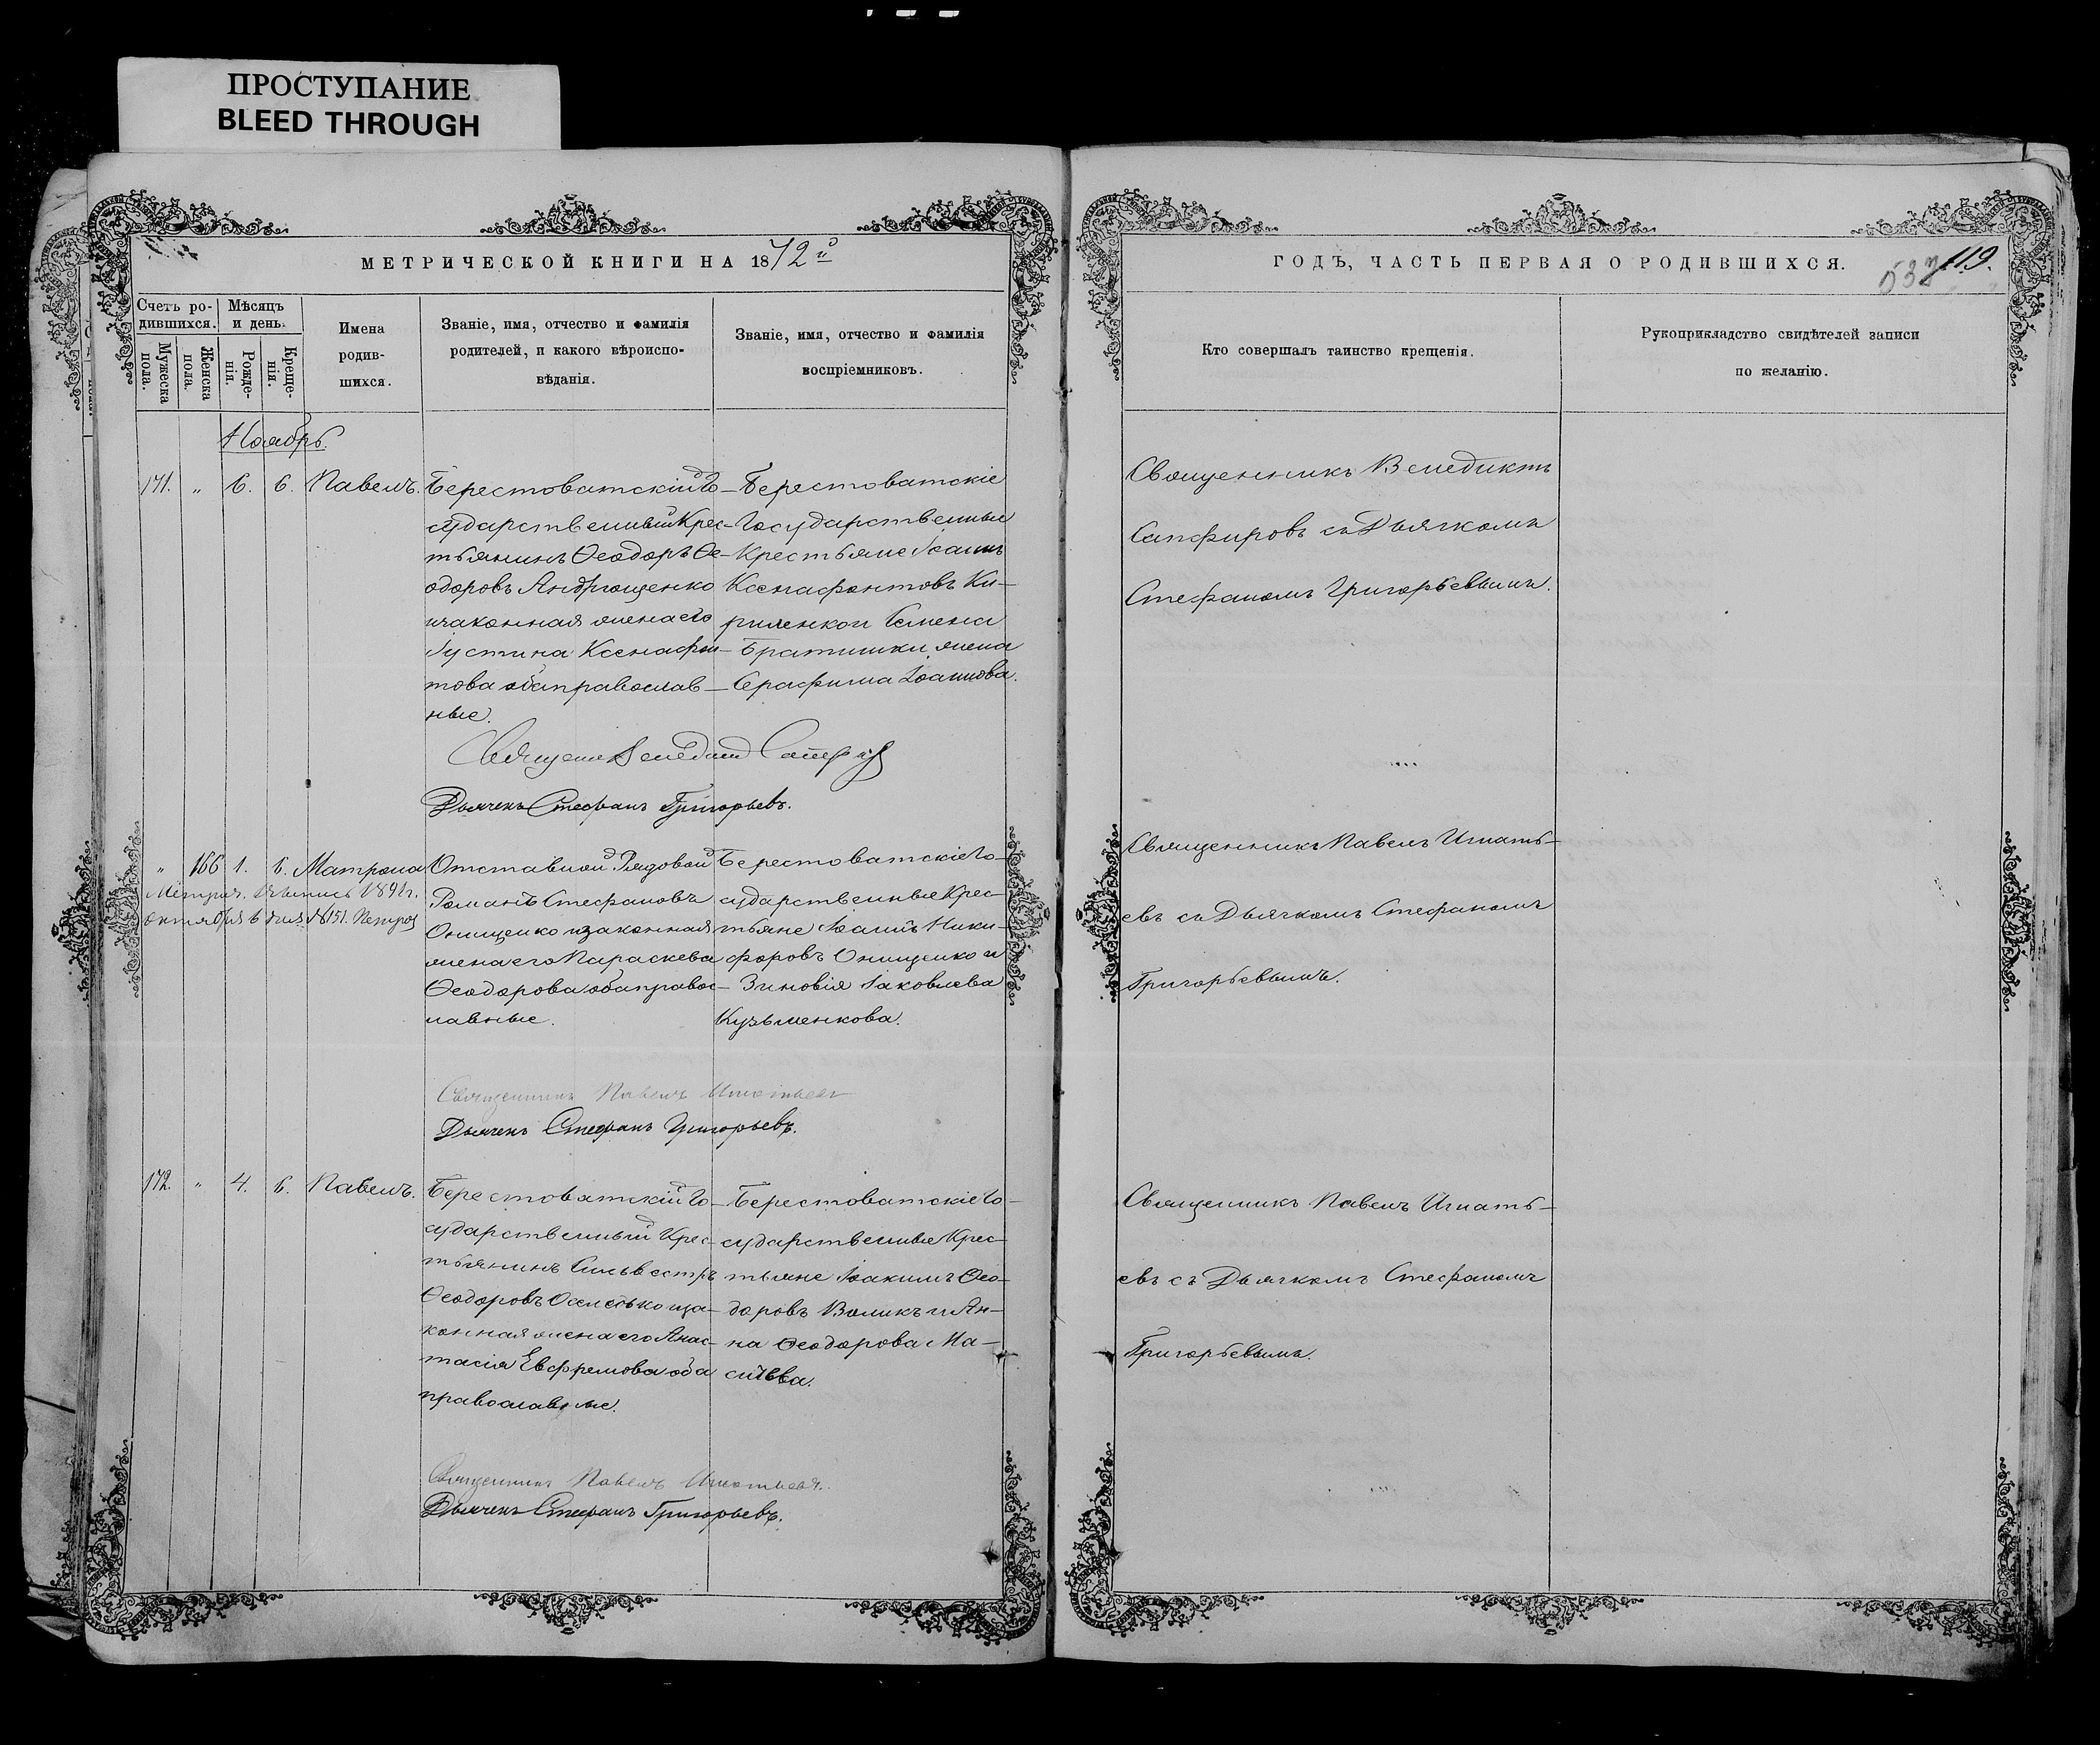 ПРОСТУПАНИЕ
BLEED THROUGH
МЕТРИЧЕСКОЙ КНИГИ НА 1872й
Счетъ ро-
дившихся.
Мужеска
пола.
Женска
пола.
Мѣсяцъ
и день.
Рожде-
нія.
Креще-
нія.
Имена
родив-
шихся.
Званіе, имя, отчество и фамилія
родителей, и какого вѣроиспо-
вѣданія.
Званіе, имя, отчество и фамилія
воспріемниковъ.
Ноябрь.
171. „ 6. 6. Павелъ.
Берестоватскій Го-
сударственный Крес-
тьянинъ Ѳеодоръ Ѳе-
одоровъ Андрющенко
и законная жена его
Іустина Ксенафон-
това оба православ-
ные.
Берестоватскіе
Государственные
Крестьяне Іоаннъ
Ксенафонтовъ Ки-
риленко и Семена
Братишки жена
Серафима Іоаннова.
Священ Венедикт Сапфир
Дьячекъ Стефанъ Григорьевъ.
„ 166 1. 6. Матрона
Метрич. выпись 1891 г.
октября 6 дня № 151.
Отставной Рядовой
Романъ Стефановъ
Онищенко и законная
жена его Параскева
Ѳеодорова оба правос-
лавные.
Берестоватскіе Го-
сударственные Крес-
тьяне Іоаннъ Ники-
форовъ Онищенко и
Зиновія Іаковлева
Кузьменкова.
Священникъ Павелъ Игнатьевъ
Дьячекъ Стефанъ Григорьевъ.
172. „ 4. 6. Павелъ.
Берестоватскій Го-
сударственный Крес-
тьянинъ Сильвестръ
Ѳеодоровъ и за-
конная жена его Анас-
тасія Евфремова оба
православные.
Берестоватскіе Го-
сударственные Крес-
тьяне Іоакимъ Ѳео-
доровъ Воликъ и Ан-
на Ѳеодорова Ма-
Священникъ Павелъ Игнатьевъ.
Дьячекъ Стефанъ Григорьевъ.
ГОДЪ, ЧАСТЬ ПЕРВАЯ О РОДИВШИХСЯ.
537
119.
Кто совершалъ таинство крещенія.
Рукоприкладство свидѣтелей записи
по желанію.
Священникъ Венедиктъ
Сапфировъ съ Дьячкомъ
Стефаномъ Григорьевымъ.
Священникъ Павелъ Игнать-
евъ съ Дьячкомъ Стефаномъ
Григорьевымъ.
Священникъ Павелъ Игнать-
евъ съ Дьячкомъ Стефаномъ
Григорьевымъ.